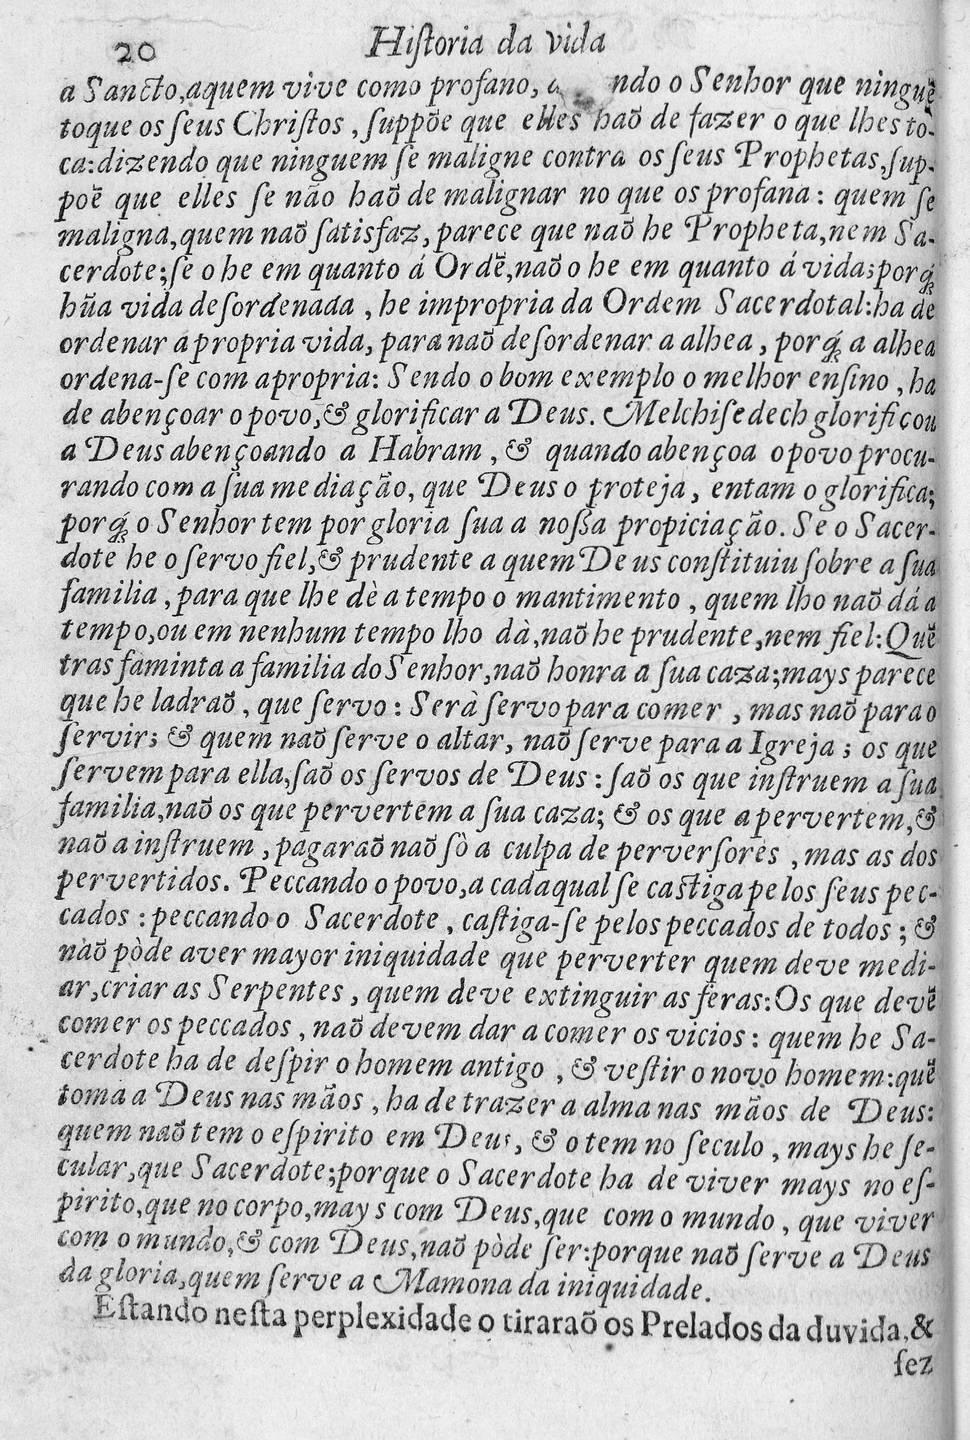 20 Hiſtoria da vida
a Sancto, aquem vive como profano, ndo o Senhor que ninguẽ
toque os ſeus Chriſtos, ſuppõe que elles haõ de fazer o que lhes to-
ca: dizendo que ninguem ſe maligne contra os ſeus Prophetas, ſup-
poẽ que elles ſe não haõ de malignar no que os profana: quem ſe
maligna, quem naõ ſatisfaz, parece que naõ he Propheta, nem Sa-
cerdote; ſe o he em quanto á Ordẽ, naõ o he em quanto á vida; porq́
hũa vida deſordenada, he impropria da Ordem Sacerdotal: ha de
ordenar a propria vida, para naõ deſordenar a alhea, porq́ a alhea
ordena-ſe com a propria: Sendo o bom exemplo o melhor enſino, ha
de abençoar o povo, & glorificar a Deus. Melchiſedech glorificou
a Deus abençoando a Habram, & quando abençoa o povo procu-
rando com a ſua mediação, que Deus o proteja, entam o glorifica;
porq́ o Senhor tem por gloria ſua a noſsa propiciação. Se o Sacer-
dote he o ſervo fiel, & prudente a quem Deus conſtituiu ſobre a ſua
familia, para que lhe dè a tempo o mantimento, quem lho naõ dá a
tempo, ou em nenhum tempo lho dà, naõ he prudente, nem fiel: Quẽ
tras faminta a familia do Senhor, naõ honra a ſua caza; mays parece
que he ladraõ, que ſervo: Serà ſervo para comer, mas naõ para o
ſervir; & quem naõ ſerve o altar, naõ ſerve para a Igreja; os que
ſervem para ella, ſaõ os ſervos de Deus: ſaõ os que inſtruem a ſua
familia, naõ os que pervertem a ſua caza; & os que a pervertem, &
naõ a inſtruem, pagaraõ naõ ſò a culpa de perverſores, mas as dos
pervertidos. Peccando o povo, a cada qual ſe caſtiga pelos ſeus pec-
cados: peccando o Sacerdote, caſtiga-ſe pelos peccados de todos; &
nàõ pòde aver mayor iniquidade que perverter quem deve medi-
ar, criar as Serpentes, quem deve extinguir as feras: Os que devẽ
comer os peccados, naõ devem dar a comer os vicios: quem he Sa-
cerdote ha de deſpir o homem antigo, & veſtir o novo homem: quẽ
toma a Deus nas mãos, ha de trazer a alma nas mãos de Deus:
quem naõ tem o eſpirito em Deus, & o tem no ſeculo, mays he ſe-
cular, que Sacerdote; porque o Sacerdote ha de viver mays no eſ-
pirito, que no corpo, mays com Deus, que com o mundo, que viver
com o mundo, & com Deus, naõ pòde ſer: porque naõ ſerve a Deus
da gloria, quem ſerve a Mamona da iniquidade.
Eſtando neſta perplexidade o tiraraõ os Prelados da duvida, &
fez